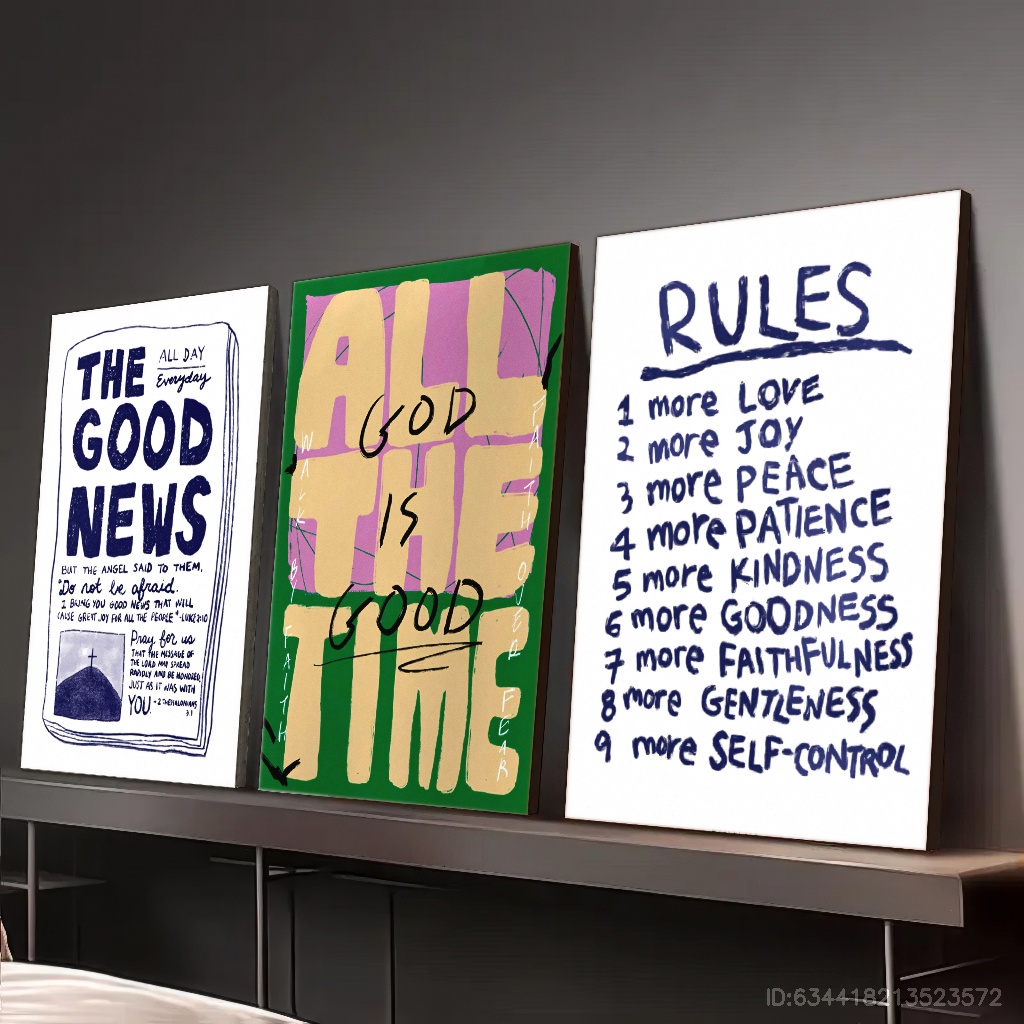 THE
ALL DAY
Everyday
GOOD
NEWS
BUT THE ANGEL SAID TO THEM,
"Do not be afraid.
I BRING YOU GOOD NEWS THAT WILL
CAUSE GREAT JOY FOR ALL THE PEOPLE" -LUKE 2:10
Pray for us
THAT THE MESSAGE OF
THE LORD MAY SPREAD
RAPIDLY AND BE HONORED,
JUST AS IT WAS WITH
YOU. -2 THESSALONIANS
3:1
ALL
THE
TIME
GOD
IS
GOOD
WALK BY FAITH
FAITH OVER FEAR
RULES
1 more LOVE
2 more JOY
3 more PEACE
4 more PATIENCE
5 more KINDNESS
6 more GOODNESS
7 more FAITHFULNESS
8 more GENTLENESS
9 more SELF-CONTROL
ID:634418213523572